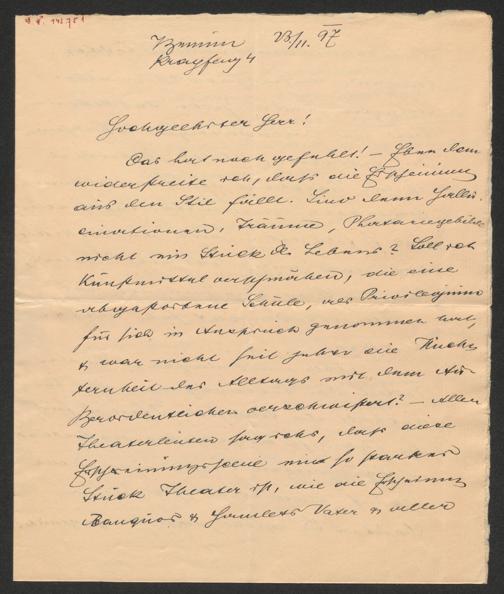 23/11. 97
Hochgeehrter Herr!
Das hat noch gefehlt! – Eben dem
widerstreite ich, daß die Erscheinung
aus dem Stil fällt. Sind denn Hallu-
cinationen, Träume, Phantasiegebilde
nicht ein Stück des Lebens? Soll ich
Kunstmittel verschmähen, die eine
abgestorbene Schule, als Privilegium
für sich in Anspruch genommen hat,
& war nicht seit jeher die Nüch-
ternheit des Alltags mit dem Au-
ßerordentlichen verschwistert? – Allen
Theaterleuten sag ichs, daß diese
Erscheinungsscene ein so starkes
Stück Theater ist, wie die Erscheinung
Banquos & Hamlets Vater & aller